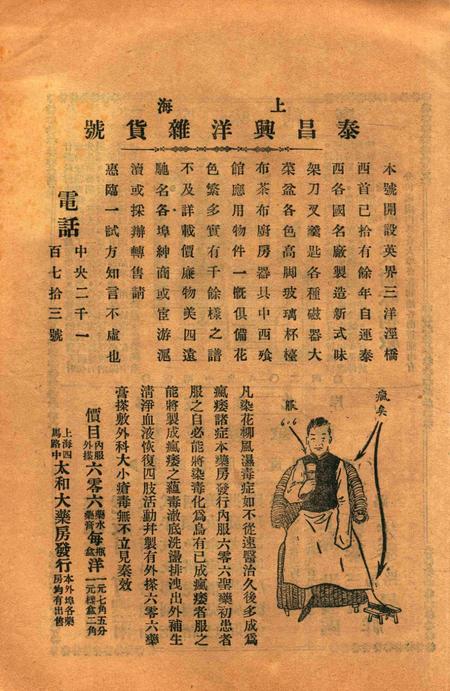 上海
泰昌興洋雜貨號
本號開設英界三洋涇橋
西首已拾有餘年自運泰
西各國名廠製造新式味
架刀叉羹匙各種磁器大
菜盆各色高脚玻璃杯檯
布茶布廚房器具中西飱
館應用物件一慨俱備花
色繁多實有千餘樣之譜
不及詳載價廉物美四遠
馳名各埠紳商或宦游滬
瀆或採辦轉售請
惠臨一試方知言不虛也
電話
中央二千一
百七拾三號
瘋矣
服
凡染花柳風濕毒症如不從速醫治久後多成爲
瘋痿諸症本藥房發行內服六零六聖藥初患者
服之自必能將染毒化爲烏有已成瘋痿者服之
能將製成瘋痿之蘊毒澈底洗盪排洩出外補生
淸淨血液恢復四肢活動幷製有外搽六零六藥
膏搽敷外科大小瘡毒無不立見奏效
價目內服外搽六零六藥水藥膏每瓶盒洋一元七角五分一元樣盒二角
上海四馬路中太和大藥房發行本外埠各藥房均有出售